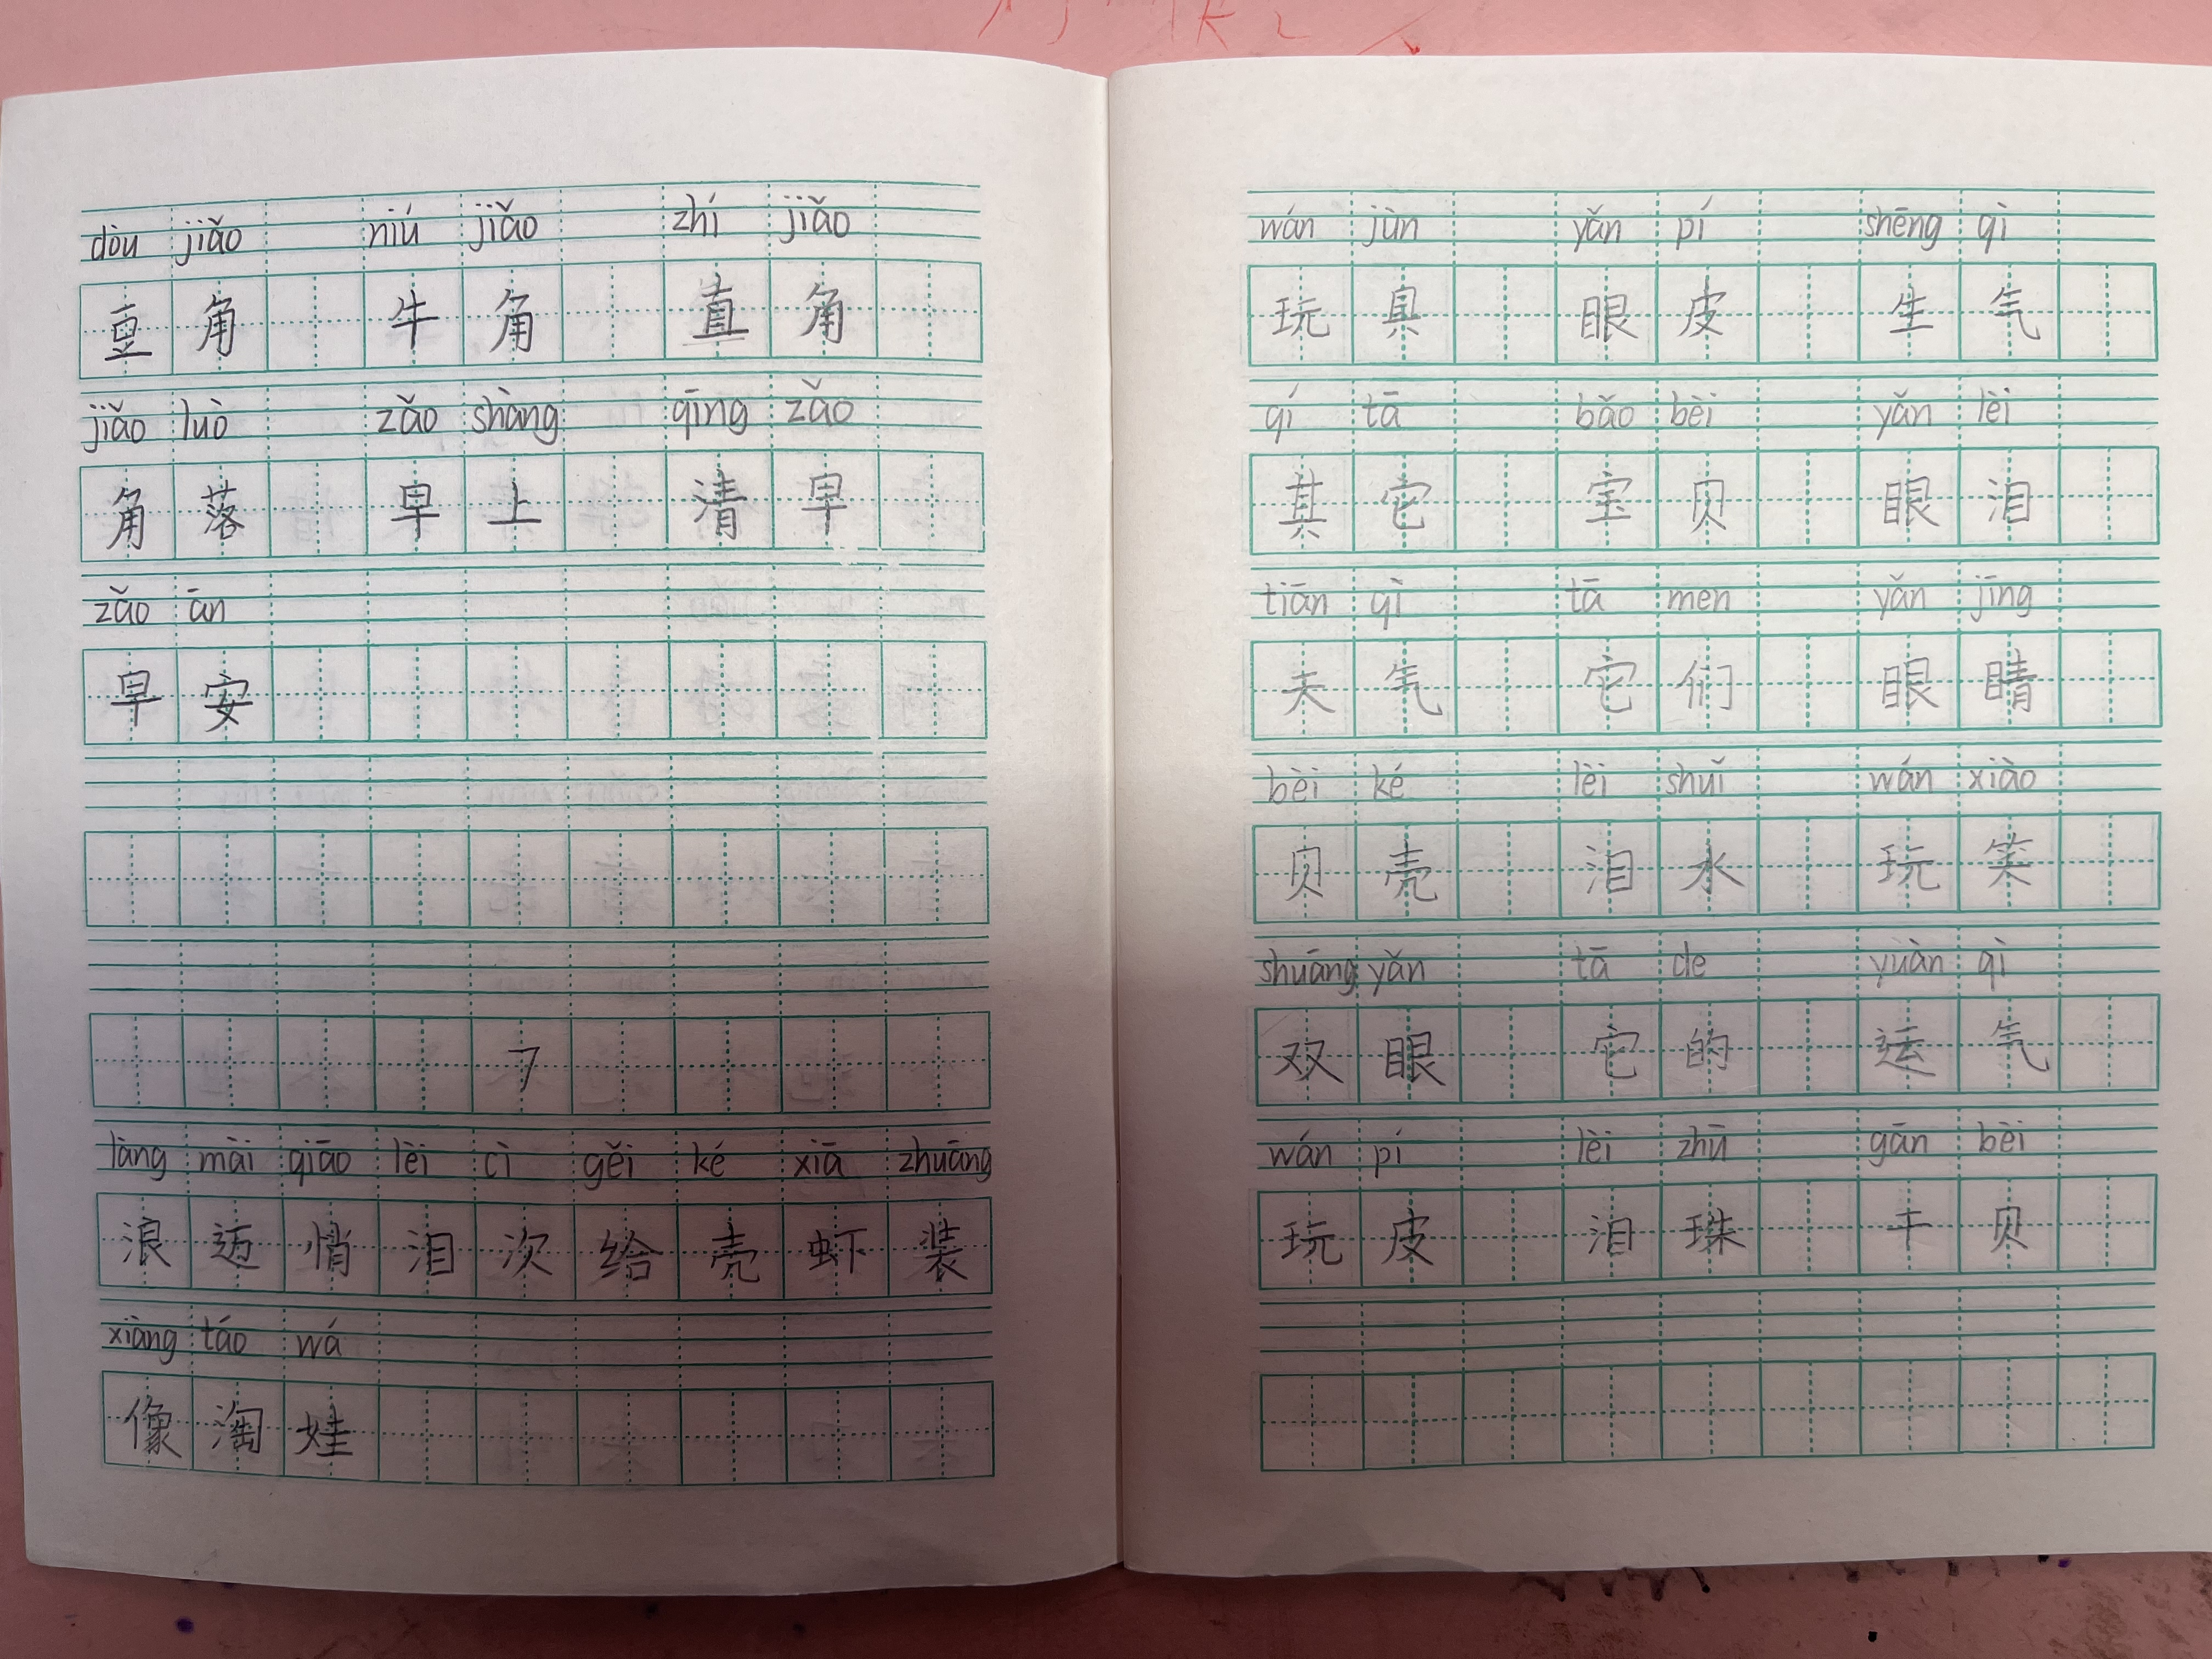 dòu jiǎo niú jiǎo zhí jiǎo
豆角 牛角 直角
jiǎo luò zǎo shàng qīng zǎo
角落 早上 清早
zǎo ān
早安
7
làng mài qiāo lèi cì gěi ké xiā zhuāng
浪迈悄泪次给壳虾装
xiàng táo wá
像淘娃
wán jùn yǎn pí shēng qì
玩具 眼皮 生气
qí tā bǎo bèi yǎn lèi
其它 宝贝 眼泪
tiān qì tā men yǎn jīng
天气 它们 眼睛
bèi ké lèi shuǐ wán xiào
贝壳 泪水 玩笑
shuāng yǎn tā de yuàn qì
双眼 它的 运气
wán pí lèi zhū gān bèi
玩皮 泪珠 干贝